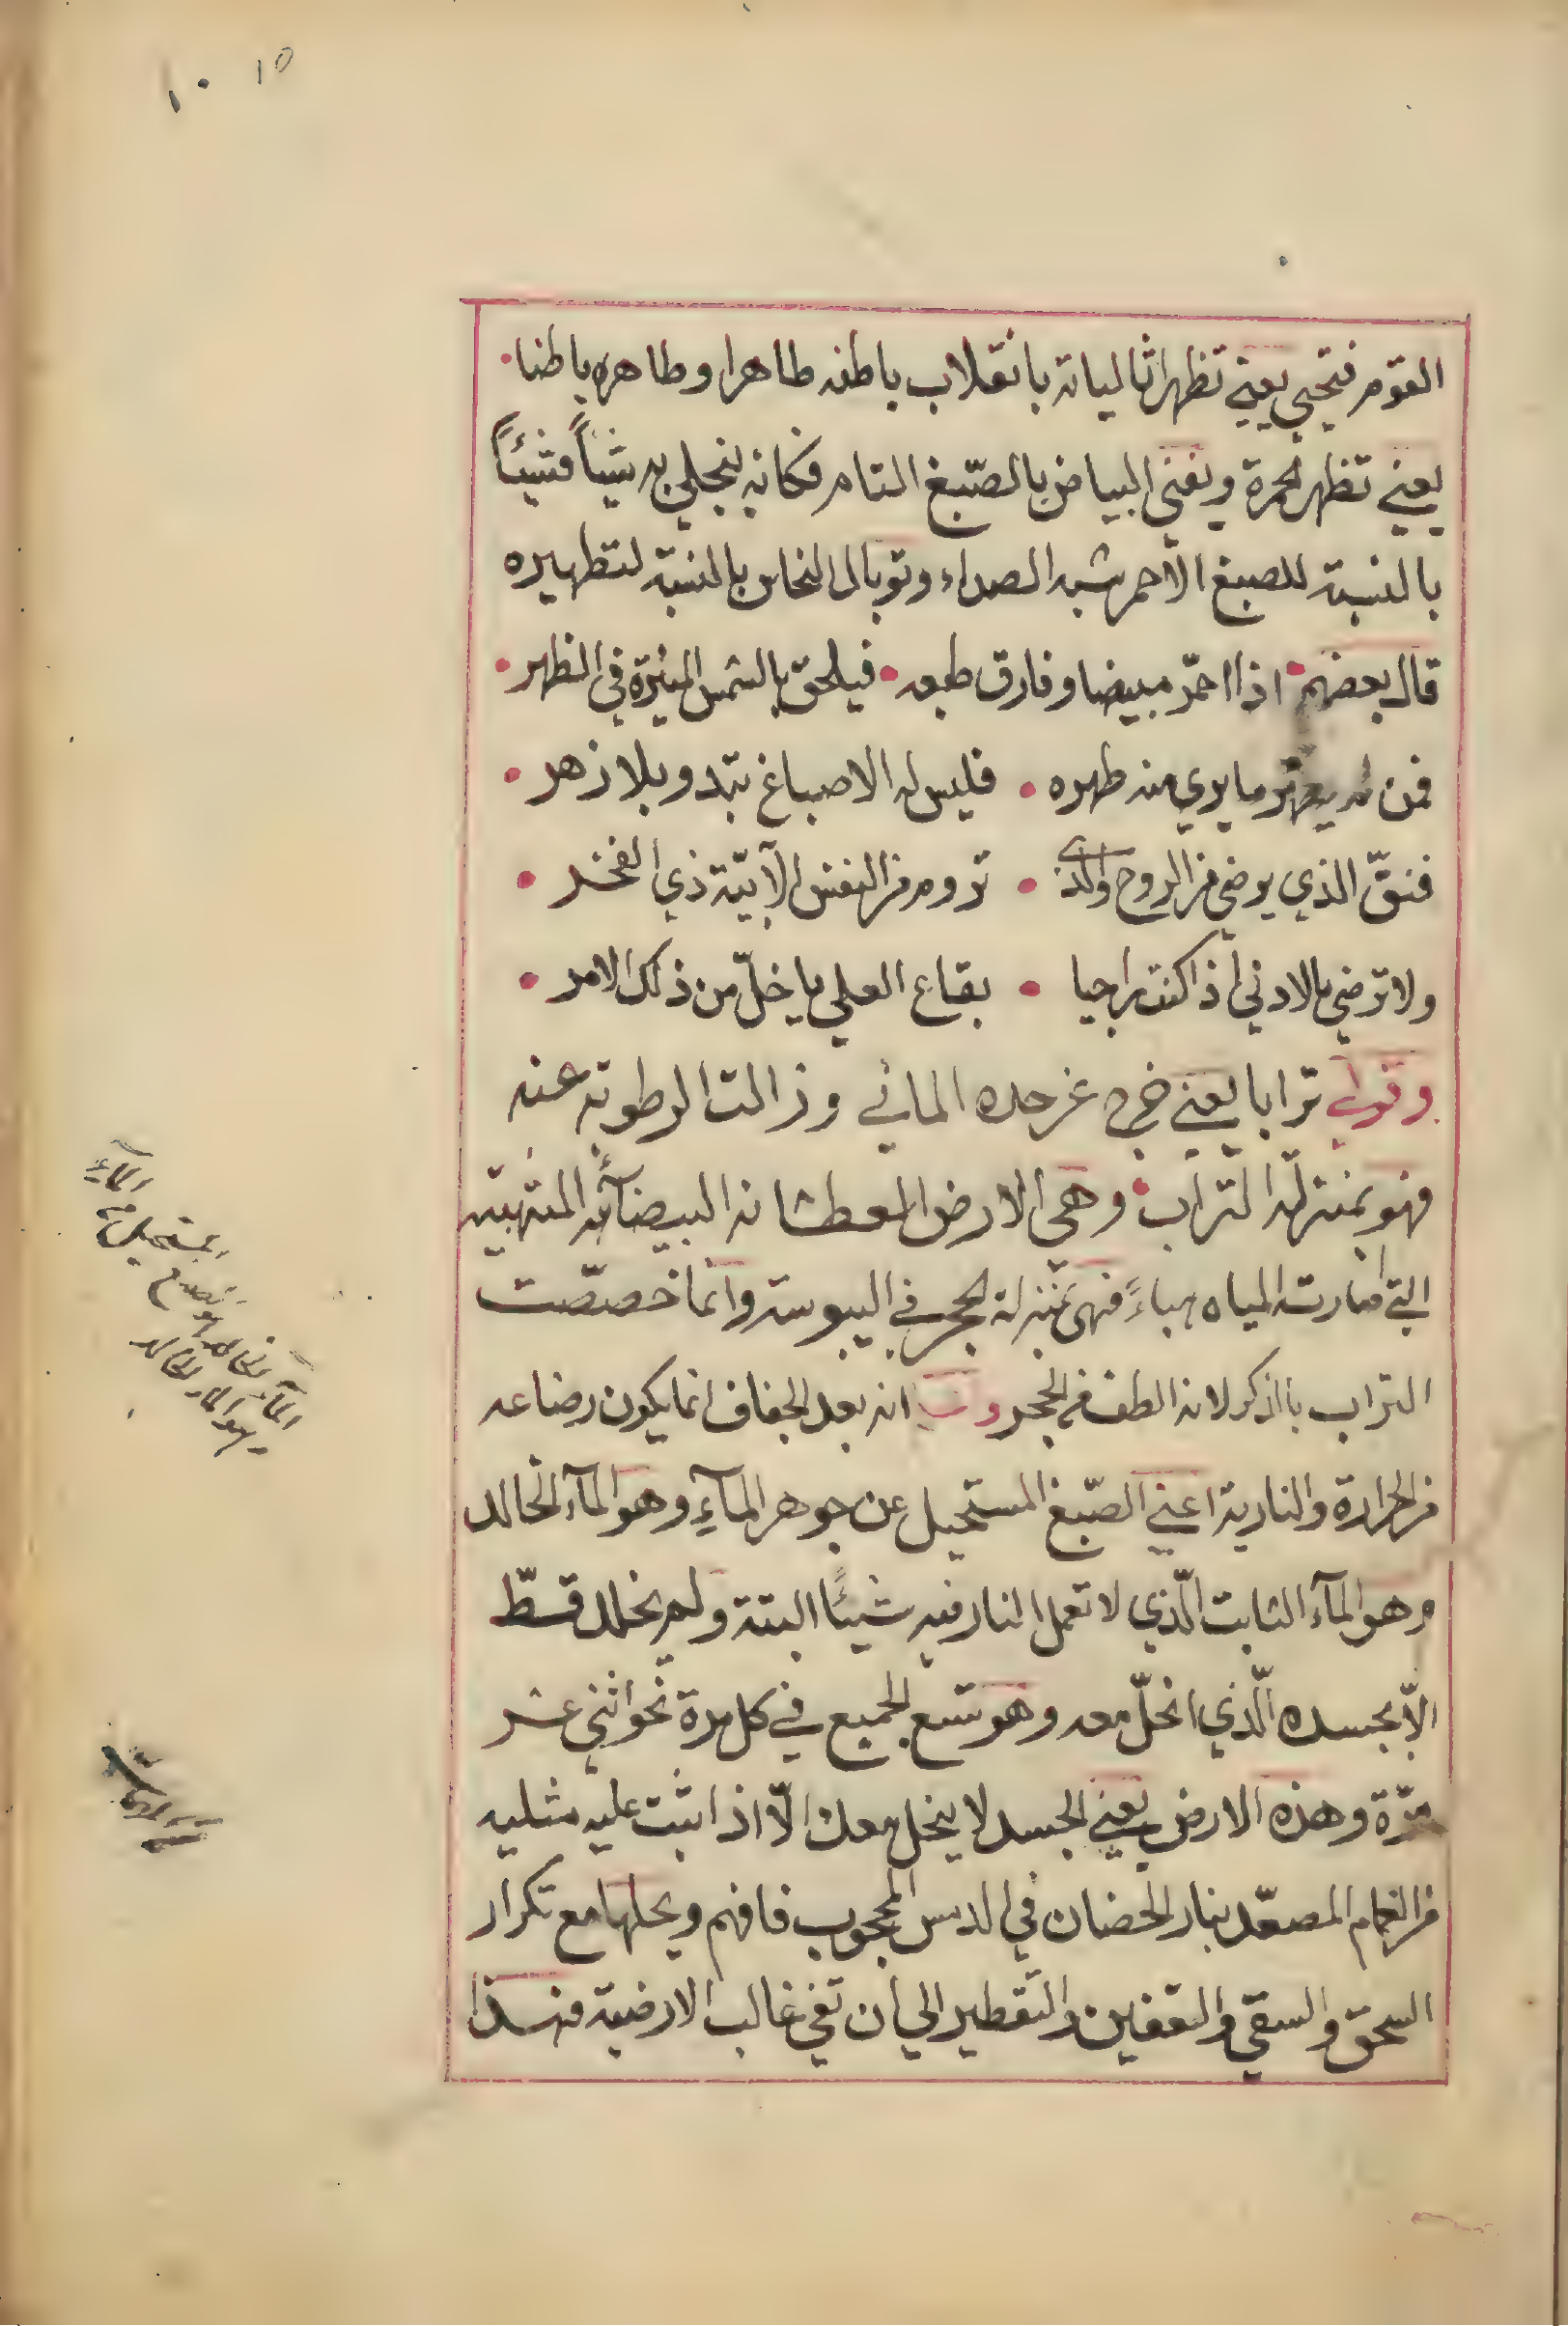 ١٥ ١٠
القوم فتحيى يعني تظهر اثاليانه بانقلاب باطنه طاهرا وطاهره باطنا
يعني تظهر الحمرة ويفنى البياض بالصّبغ التام فكانه ينجلي به شيئاً فشيئاً
بالنسبة للصبغ الاحمر شبه الصداء وتوبال النحاس بالنسبة لتطهيره
قال بعضهم اذا احمرّ مبيضا وفارق طبعه فيلحق بالشمس المنيرة في الظهر
فمن لم يطهّر ما يري منه طهره فليس له الاصباغ تبدو بلا زهر
فنقّ الذي يرضى من الروح والذي تروم من النفس الآبيّة ذي الفخر
ولا ترضى بالادنى اذا كنت راجيا بقاع العلي يا خلّ من ذلك الامر
وقوله ترابا يعني خرج عن حده المائي وزالت الرطوبة عنه
فهو بمنزلة التراب وهي الارض العطشانه البيضائه المتهبيّه
التي صارت المياه هباءً فهي بمنزلة الحجر في اليبوسة وانما خصصت
التراب بالذكر لانه الطف من الحجر انه بعد الجفاف انما يكون رضاعه
من الحرارة والنارية اعني الصّبغ المستحيل عن جوهر المآءِ وهو المآء الخالد
وهو المآء الثابت الّذي لا تعمل النار فيه شيئًا البتة ولم يخلد قطّ
الاّ بجسده الّذي انحلّ معه وهو تسع الجميع في كل مرة نحو اثني عشر
مرّة وهذه الارض يعني الجسد لا ينحل معك الّا اذا ثبت عليه مثليه
من الغمام المصعّد بنار الحضان في الدمس المحجوب فافهم ويحلها مع تكرار
السحق والسقي والتعفين والتقطير الي ان تفي غالب الارضية فهذا
المآءِ
المستحيل
المآء الخالد